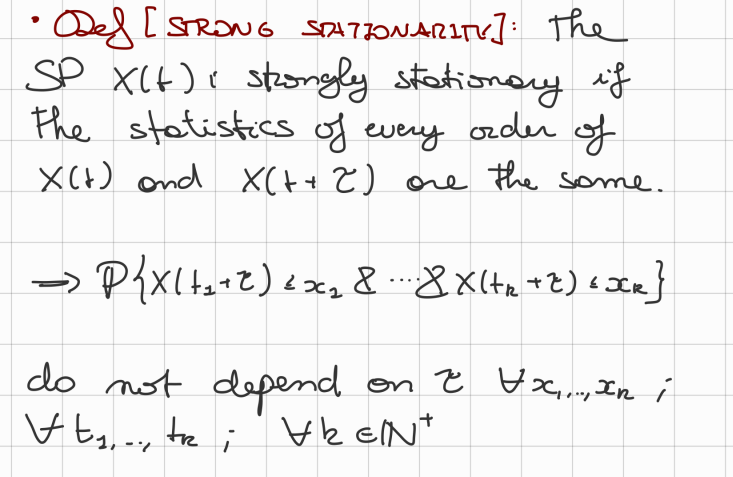 • Def [STRONG STATIONARITY]: The
SP X(t) i strongly stationary if
the statistics of every order of
X(t) and X(t+τ) are the same.
→ ℙ{X(t₁+τ) ≤ x₁ & ... & X(tₖ+τ) ≤ xₖ}
do not depend on τ ∀x₁,..,xₖ ;
∀ t₁,..,tₖ ; ∀k ∈ ℕ⁺